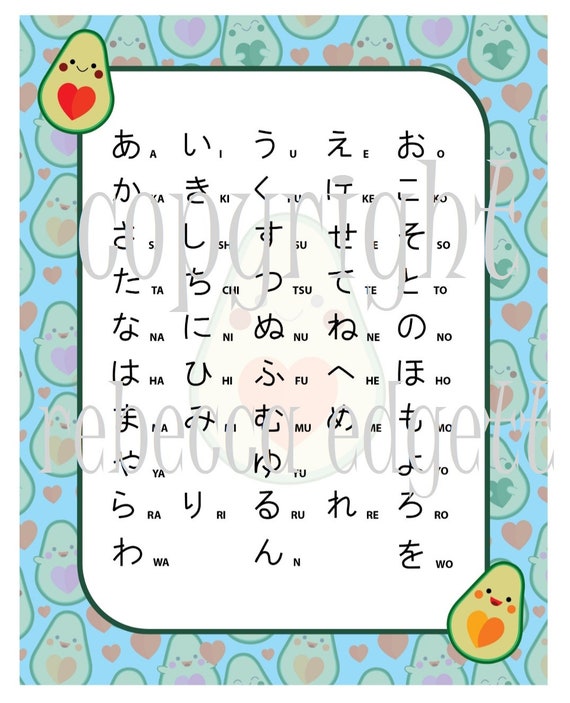 あ A い I う U え E お O
か KA き KI く KU け KE こ KO
さ SA し SHI す SU せ SE そ SO
た TA ち CHI つ TSU て TE と TO
な NA に NI ぬ NU ね NE の NO
は HA ひ HI ふ FU へ HE ほ HO
ま MA み MI む MU め ME も MO
や YA ゆ YU よ YO
ら RA り RI る RU れ RE ろ RO
わ WA ん N を WO
copyright
rebecca edgett